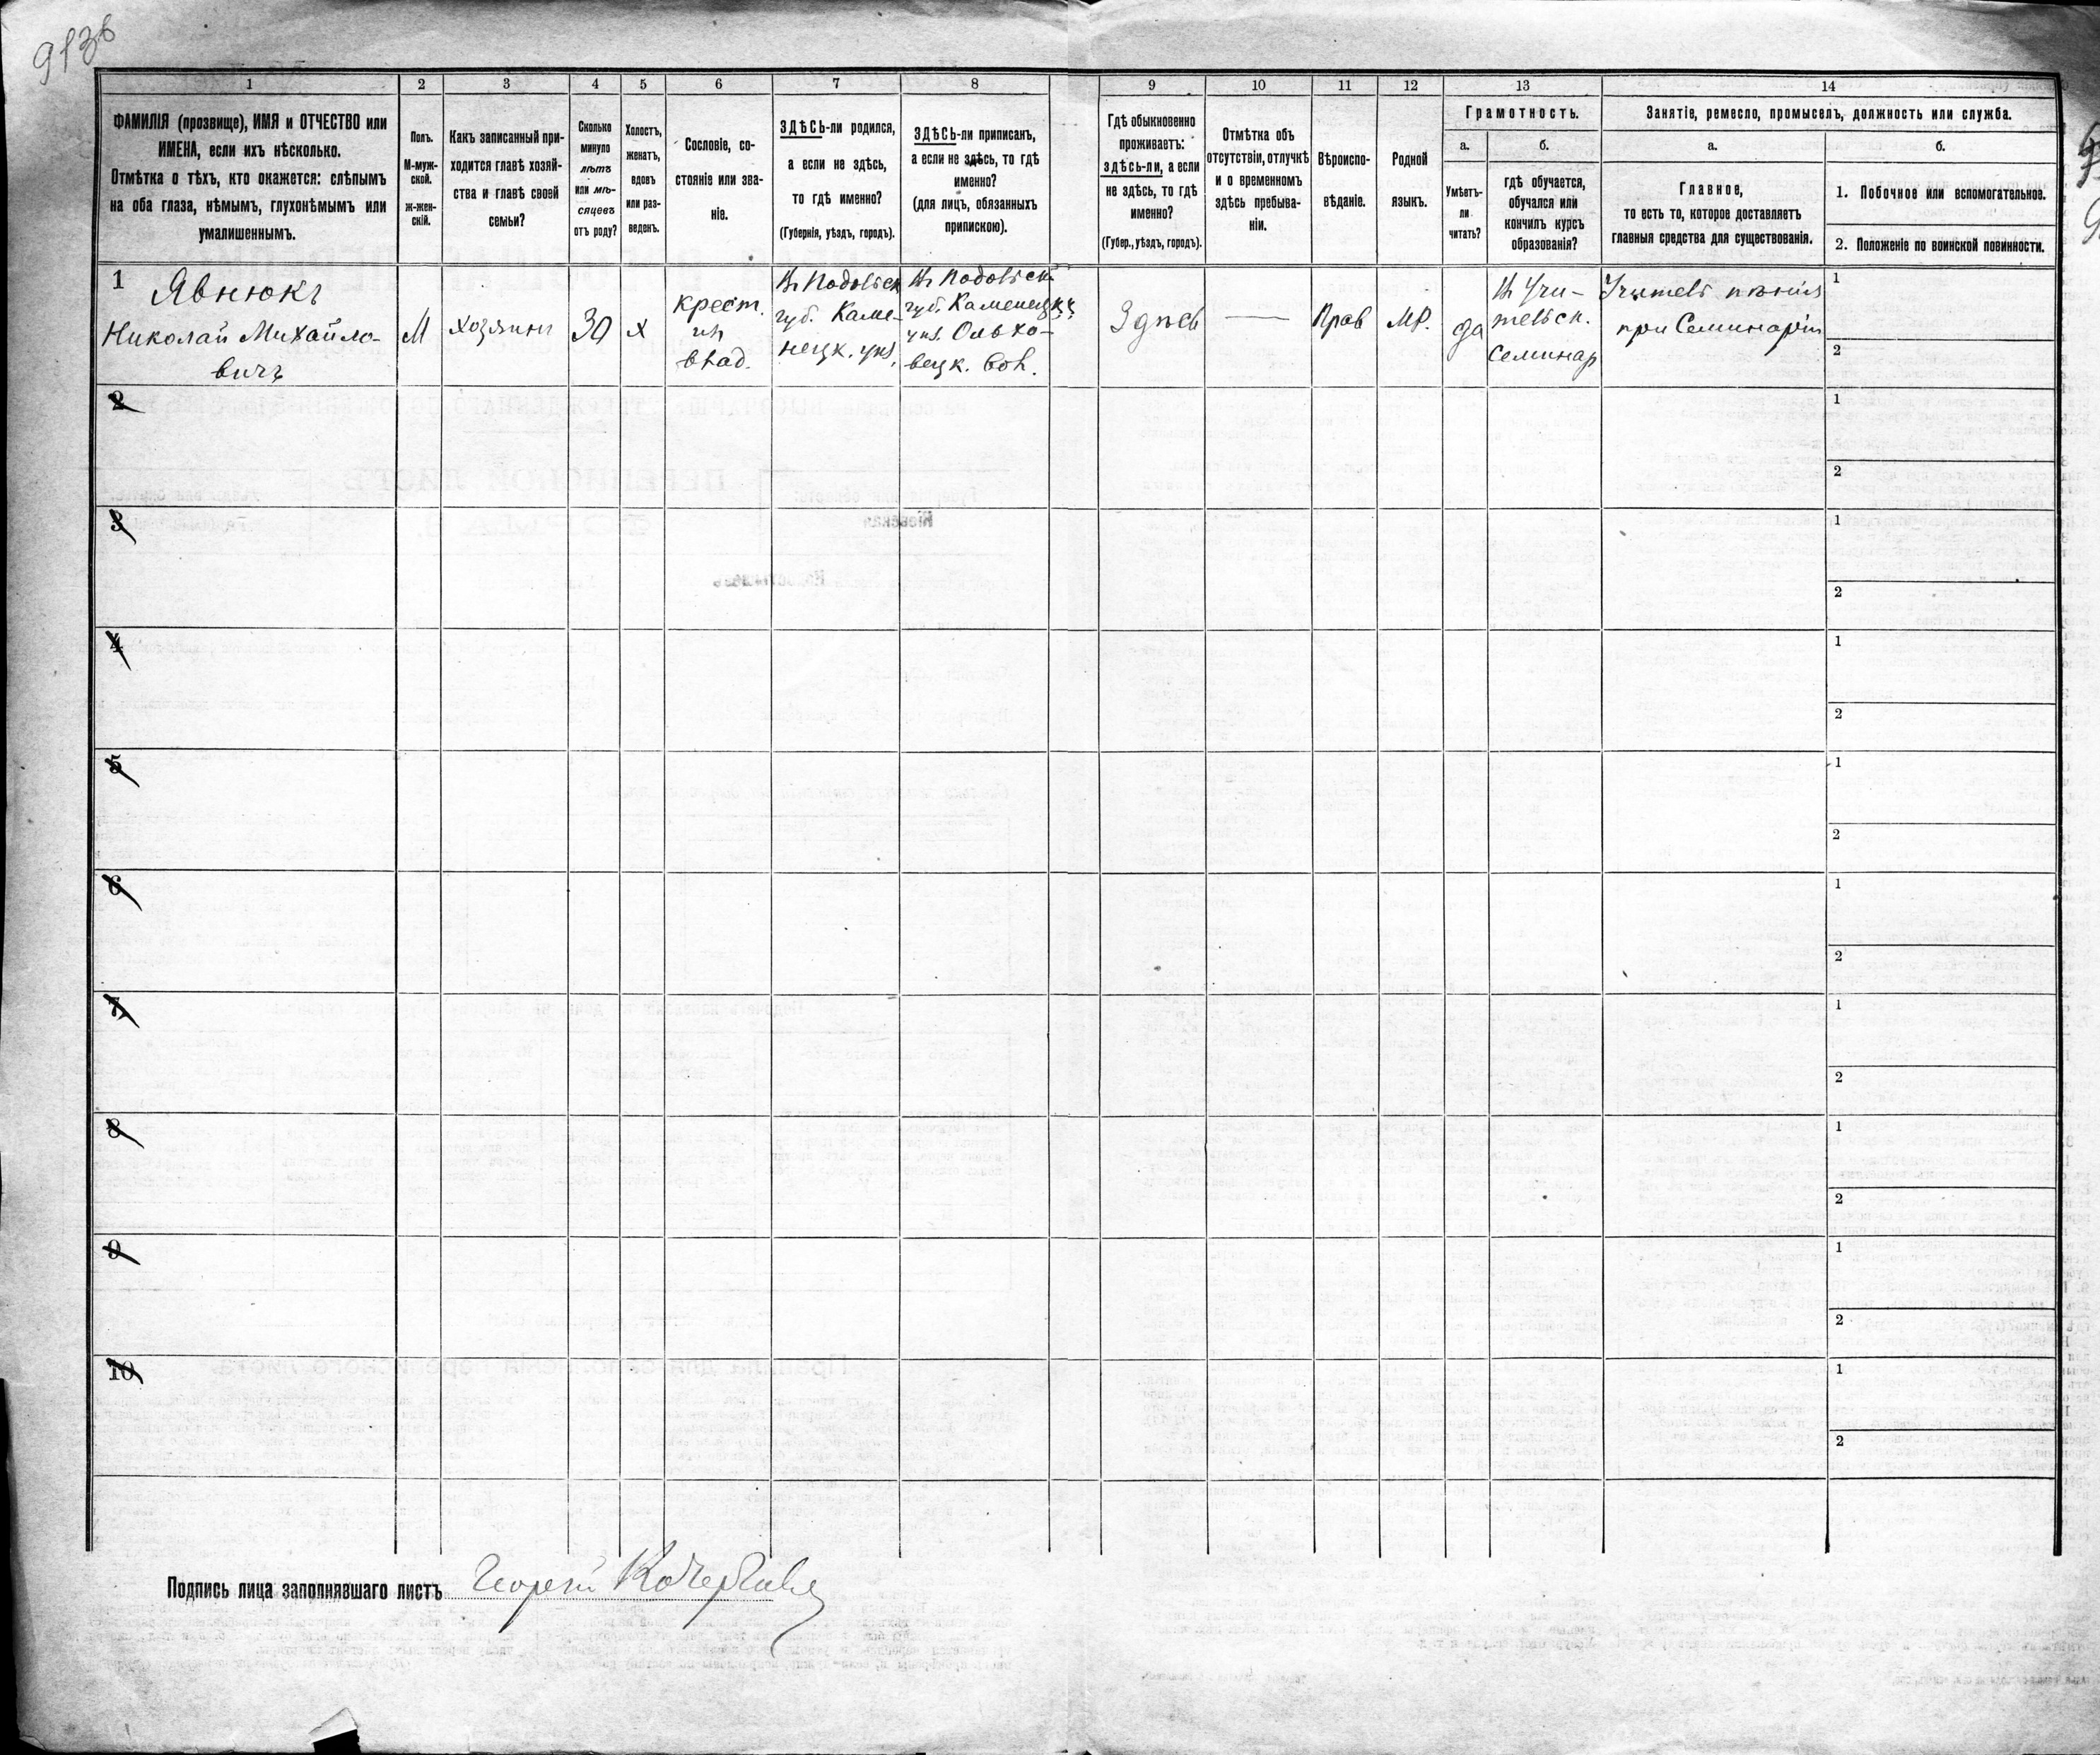 913б
1
2
3
4
5
6
7
8
9
10
11
12
13
14
ФАМИЛІЯ (прозвище), ИМЯ и ОТЧЕСТВО или
ИМЕНА, если ихъ нѣсколько.
Отмѣтка о тѣхъ, кто окажется: слѣпымъ
на оба глаза, нѣмымъ, глухонѣмымъ или
умалишеннымъ.
Полъ.
М-муж-
ской.
Ж-жен-
скій.
Какъ записанный при-
ходится главѣ хозяй-
ства и главѣ своей
семьи?
Сколько
минуло
лѣтъ
или мѣ-
сяцевъ
отъ роду?
Холостъ,
женатъ,
вдовъ
или раз-
веденъ.
Сословіе, со-
стояніе или зва-
ніе.
ЗДѢСЬ-ли родился,
а если не здѣсь,
то гдѣ именно?
(Губернія, уѣздъ, городъ).
ЗДѢСЬ-ли приписанъ,
а если не здѣсь, то гдѣ
именно?
(для лицъ, обязанныхъ
припискою).
Гдѣ обыкновенно
проживаетъ:
здѣсь-ли, а если
не здѣсь, то гдѣ
именно?
(Губер., уѣздъ, городъ).
Отмѣтка объ
отсутствіи, отлучкѣ
и о временномъ
здѣсь пребыва-
ніи.
Вѣроиспо-
вѣданіе.
Родной
языкъ.
Грамотность.
а.
Умѣетъ-
ли
читать?
б.
гдѣ обучается,
обучался или
кончилъ курсъ
образованія?
Занятіе, ремесло, промыселъ, должность или служба.
а.
Главное,
то есть то, которое доставляетъ
главныя средства для существованія.
б.
1. Побочное или вспомогательное.
2. Положеніе по воинской повинности.
1
Явнюкъ
Николай Михайло-
вичъ
М
хозяинъ
30
х
крест.
изъ
влад.
Въ Подольск
губ. Каме-
нецк. уѣз.
Въ Подольск
губ. Каменецк
уѣз. Ольхо-
вецк. вол.
Здѣсь
—
Прав
мр.
да
Въ Учи-
тельск.
Семинар
Учитель пѣнія
при Семинаріи
1
2
2
1
2
3
1
2
4
1
2
5
1
2
6
1
2
7
1
2
8
1
2
9
1
2
10
1
2
Подпись лица заполнявшаго листъ Георгій